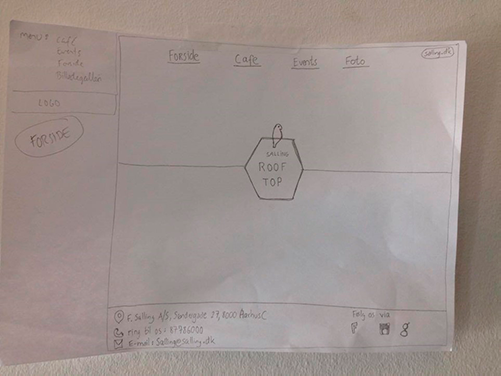 menu:
Café
Events
Forside
Billedegalleri
LOGO
FORSIDE
Forside
Cafe
Events
Foto
Salling.dk
SALLING
ROOF
TOP
F. Salling A/S, Søndergade 27, 8000 Aarhus C
Ring til os: 87786000
E-mail: Salling@salling.dk
Følg os via